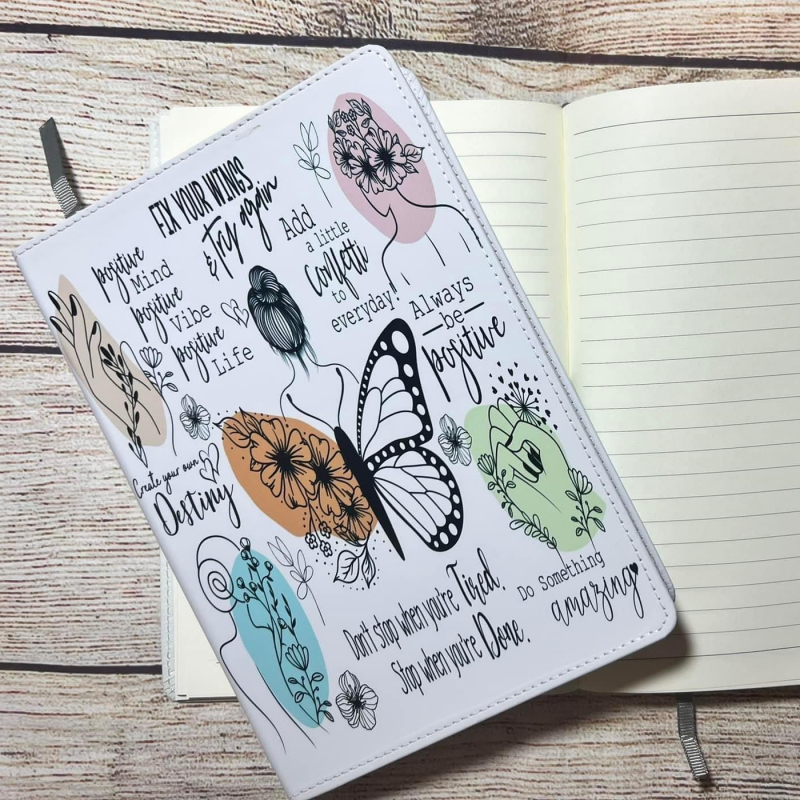 FIX YOUR WINGS
& Try again
Add
a little
Confetti
to
everyday!
positive
Mind
positive
Vibe
positive
Life
Always
be
positive
Create your own
Destiny
Don't stop when you're Tired.
Stop when you're Done.
Do Something
amazing